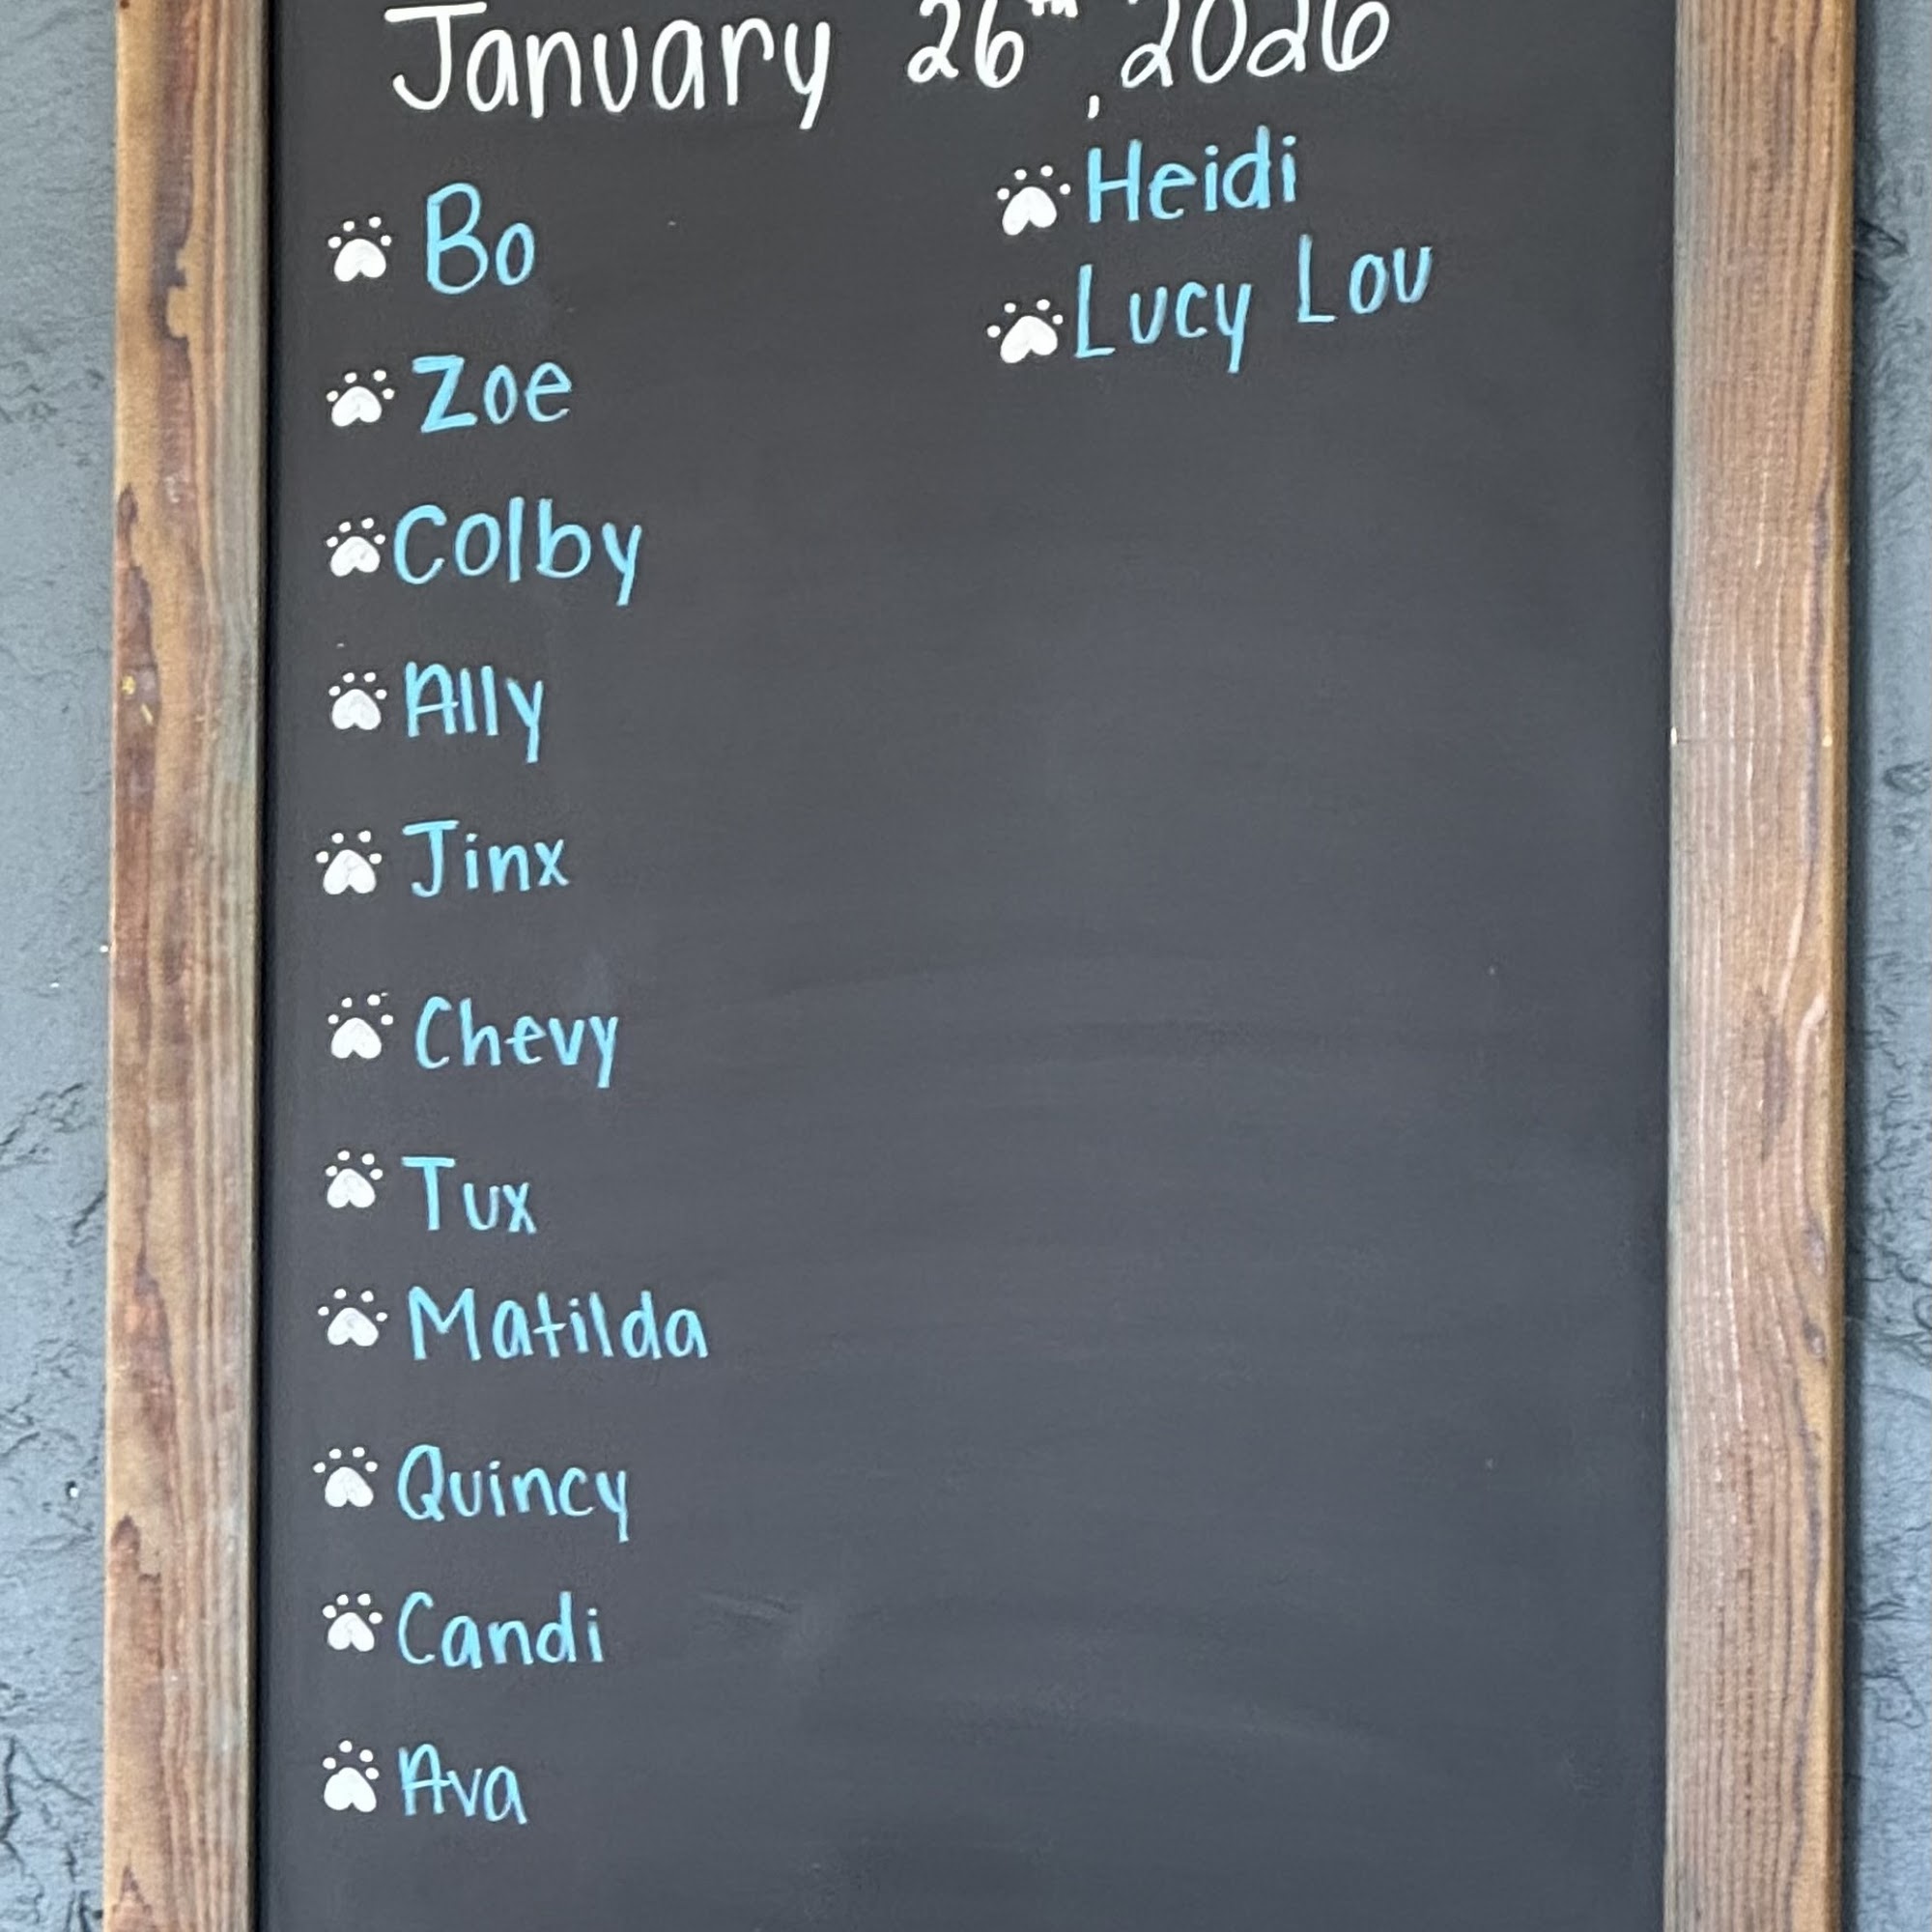 January 26th, 2026
Bo
Zoe
Colby
Ally
Jinx
Chevy
Tux
Matilda
Quincy
Candi
Ava
Heidi
Lucy Lou